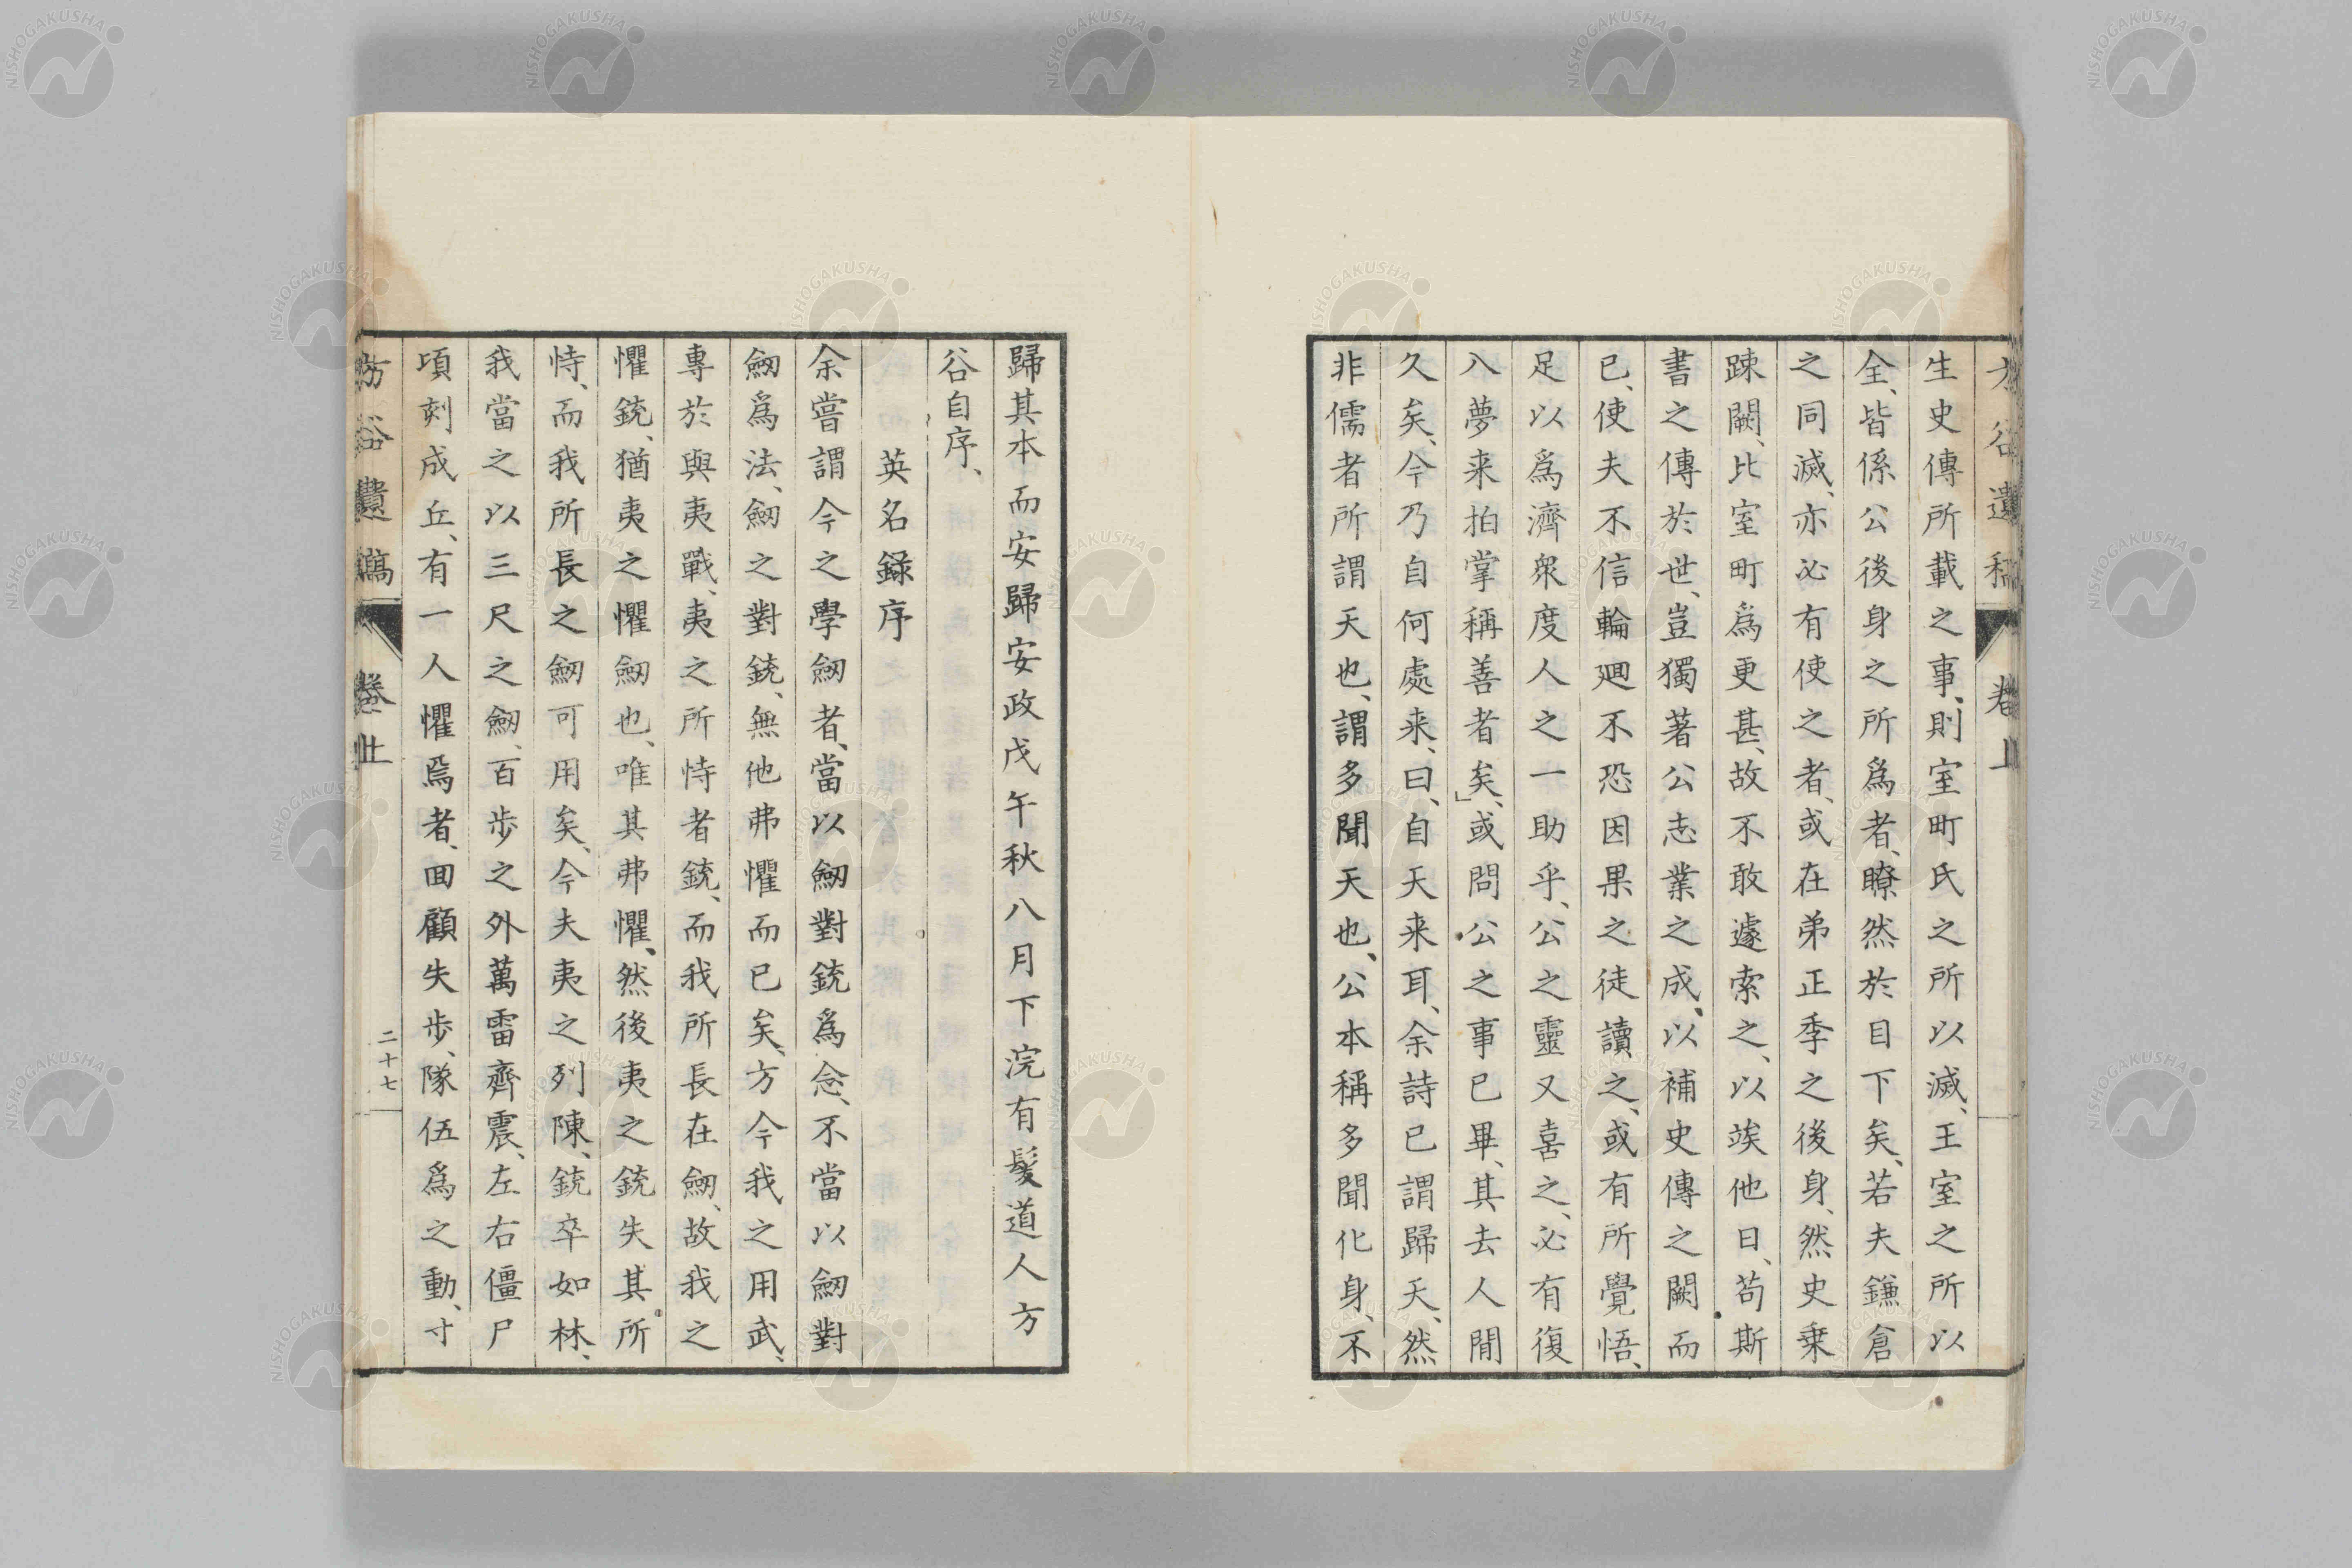 生史傳所載之事、則室町氏之所以滅、王室之所以
全、皆係公後身之所爲者、瞭然於目下矣、若夫鎌倉
之同滅、亦必有使之者、或在弟正季之後身、然史乗
踈闕、比室町爲更甚、故不敢遽索之、以竢他日、苟斯
書之傳於世、豈獨著公志業之成、以補史傳之闕而
已、使夫不信輪廻不恐因果之徒讀之、或有所覺悟、
足以爲濟衆度人之一助乎、公之靈又喜之、必有復
入夢来拍掌稱善者矣、」或問公之事已畢、其去人間
久矣、今乃自何處来、曰、自天来耳、余詩已謂歸天、然
非儒者所謂天也、謂多聞天也、公本稱多聞化身、不
歸其本而安歸安政戊午秋八月下浣有髮道人方
谷自序、
英名録序
余嘗謂今之學劒者、當以劒對銃爲念、不當以劒對
劒爲法、劒之對銃、無他弗懼而已矣、方今我之用武、
專於與夷戰、夷之所恃者銃、而我所長在劒、故我之
懼銃、猶夷之懼劒也、唯其弗懼、然後夷之銃失其所
恃、而我所長之劒可用矣、今夫夷之列陳、銃卒如林、
我當之以三尺之劒、百歩之外萬雷齊震、左右僵尸
頃刻成丘、有一人懼焉者、回顧失歩、隊伍爲之動、寸
卷上
二十七
NISHOGAKUSHA